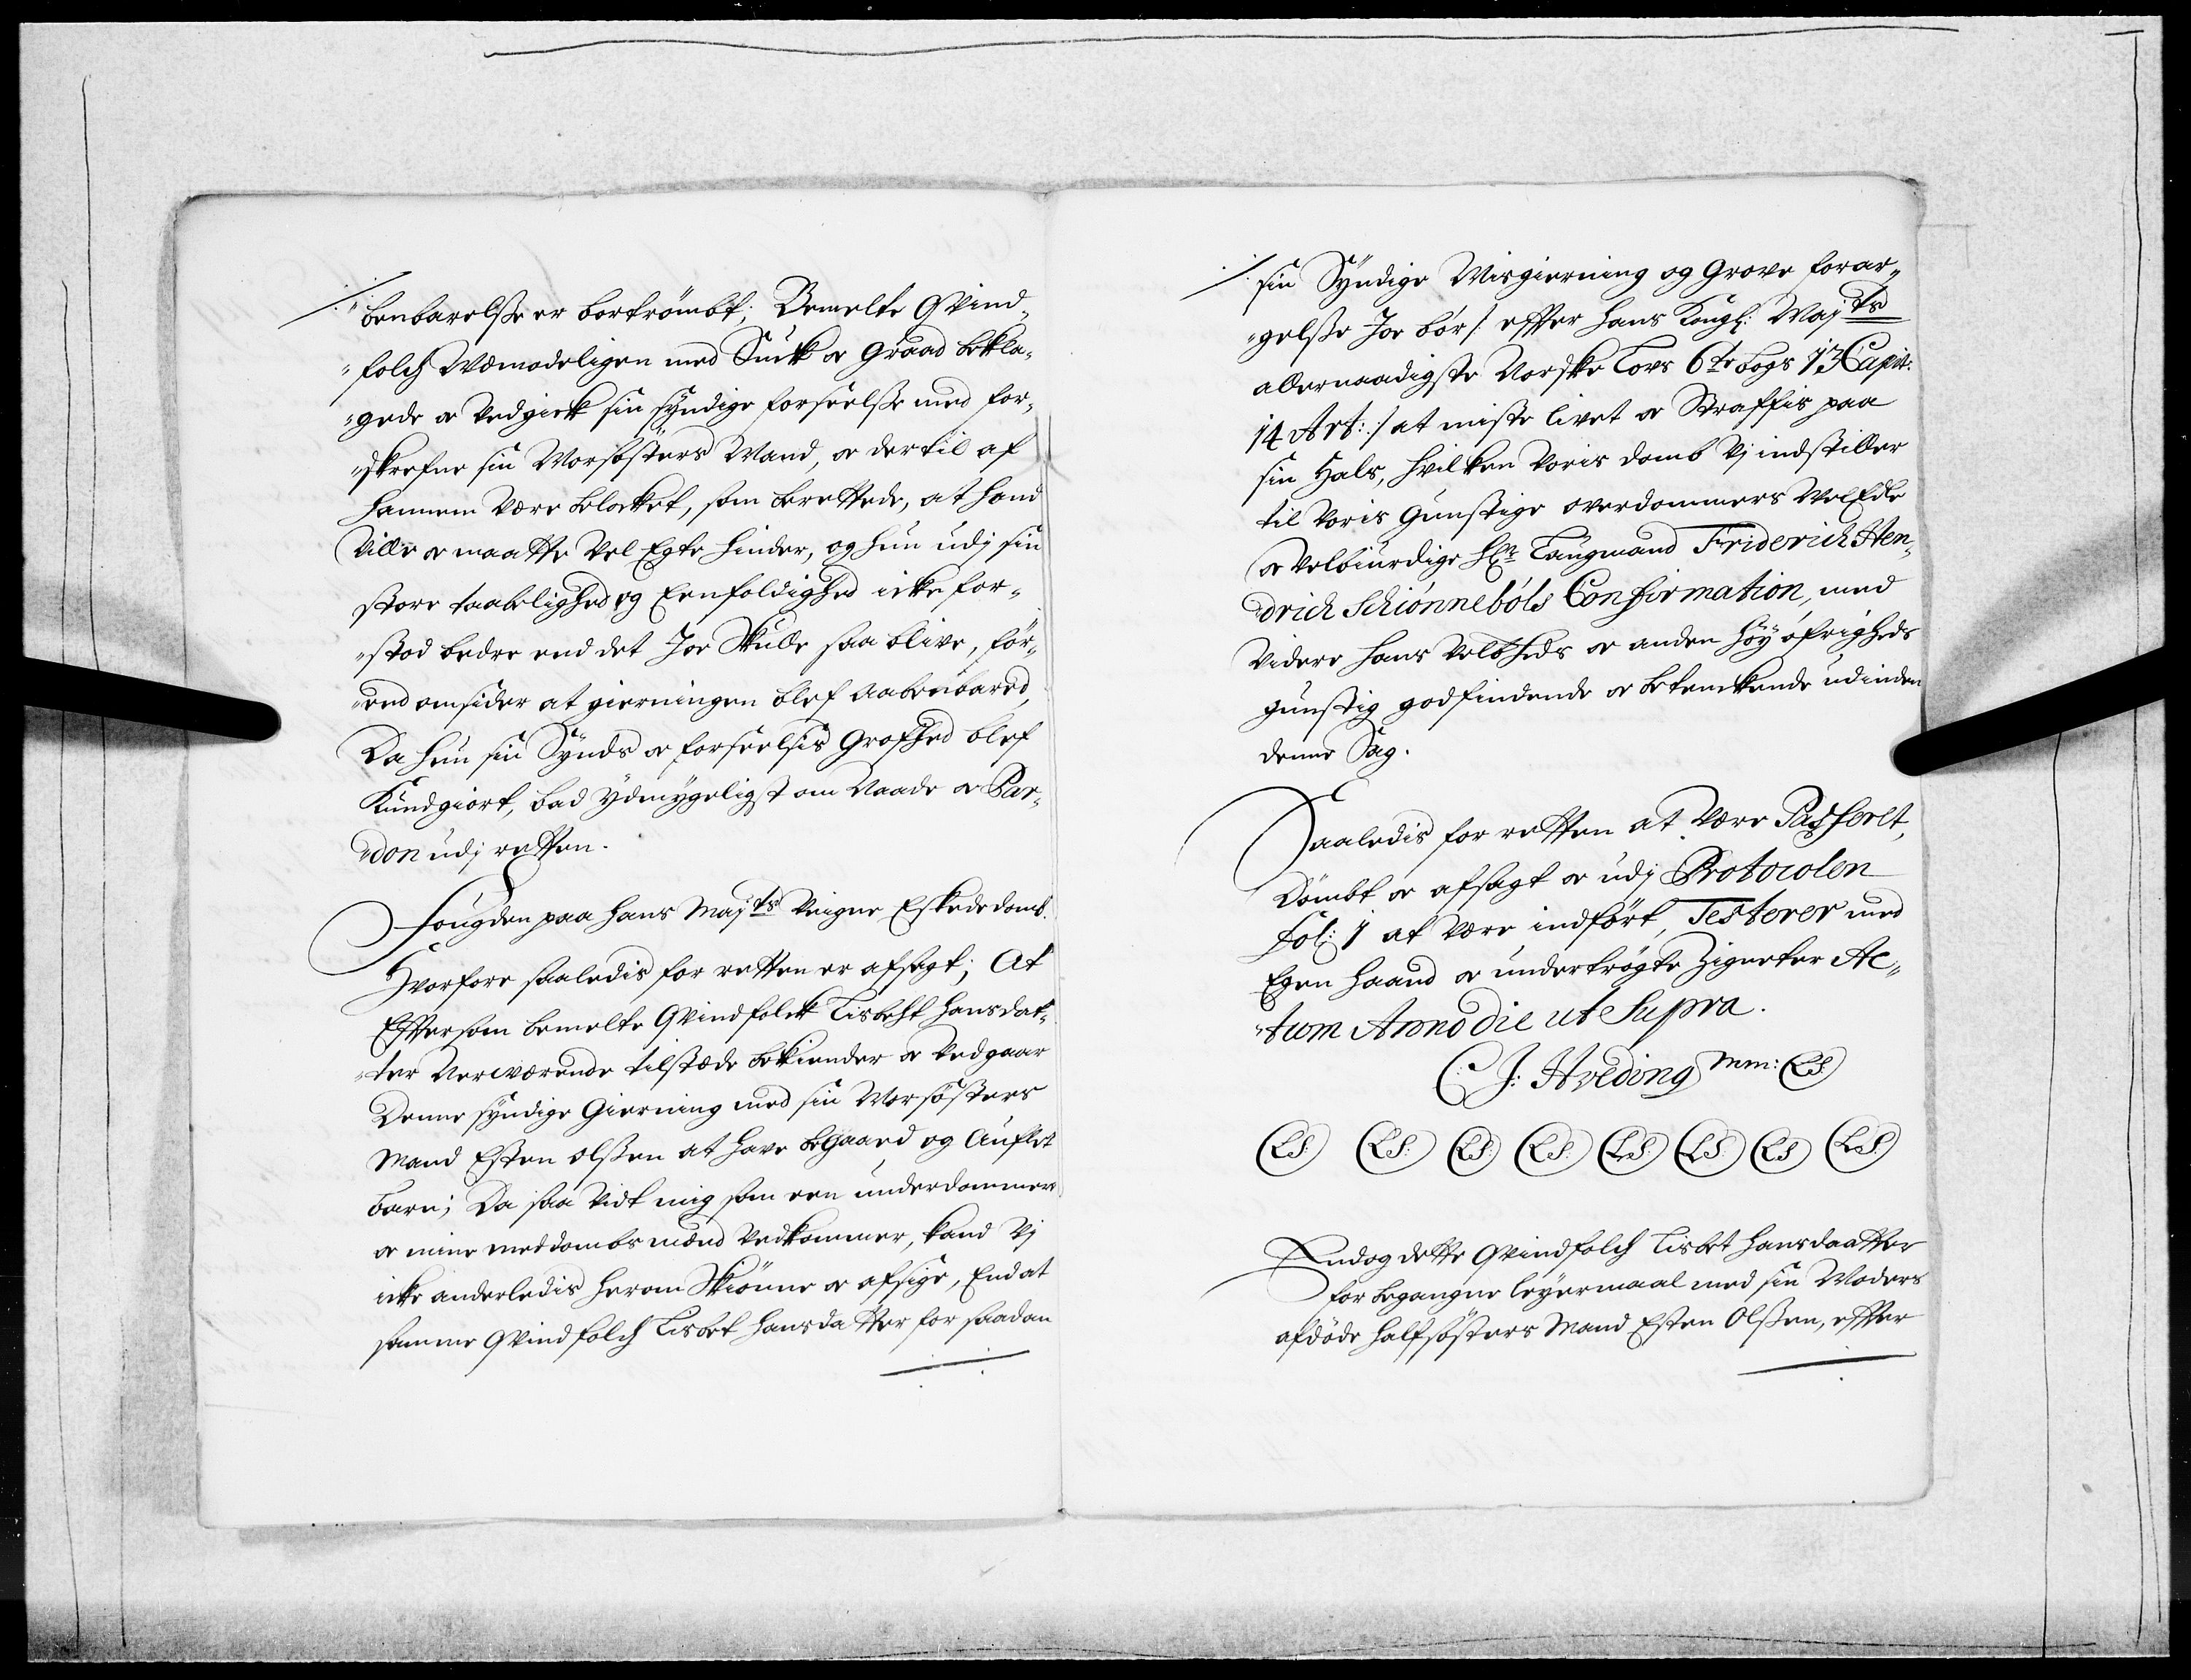 benbarelsse er bortrömbt; Bemelte Qvind„
„folch Wemodeligen med Suck og Graad bekla„
„gede og Vedgick sin syndige forseelsse med for„
„skrefne sin Morsösters Mand, og dertil af
hannem være blocket, som berettede, at hand
Ville og maatte Vel Egte hinder, og hun udj sin
store taabelighed og Eenfoldighed icke for„
„stod bedre end det Joe Skulle saa blive, för„
„end omsider at gierningen blef Aabenbared,
Da hun sin Synds og forseelsis Grofhed blef
Kundgiort, bad ydmygeligst om Naade og Par„
„don udj retten.
Fougden paa Hans Maj:ts Veigne Eskede domb.
Hvorfore saaledis for retten er afsagt; At
Eftersom bemelte Qvindfolck Lisbeht Hansdat„
„ter Nerværende tilstæde bekiender og Vedgaar
Denne syndige Gierning med sin Morsösters
Mand Esten Olssen at have begaaed og Auflet
barn; Da saa vidt mig som een underdommere
og mine meddombsmænd Vedkommer, kand Vj
icke anderledis herom Skiönne og afsige, End at
samme Qvindfolch Lisbet Hansdatter for saadan
sin Syndige Misgierning og Grove forar„
„gelsse Joe bör /: efter Hans Kongl: Maj:ts
allernaadigste Norske Lovs 6te bogs 13 Capit:
14 Art: :/ at miste livet og Straffis paa
sin Hals, hvilken Voris domb Vj indstiller
til Voris Gunstige overdommers WelEdle
og Velbiurdige Hr: Laugmand Friderich Hen„
„drich Schiönnebóls Confirmation, med
Videre hans Velbheds og anden höy öfrigheds
gunstig godfindende og betenckende udinden
denne Sag.
Saaledis for retten at være Passerlt,
Dömbt og afsagt og udj Protocolen
Fol: 1 at være indfört, Testerer med
Egen Haand og undertrögte Zigneter Ac„
„tum Anno die ut Supra.
C: J: Hveding mm: LS:
LS: LS: LS: LS: LS: LS: LS LS:
Endog dette Qvindfolch Lisbet Hansdaatter
for begangne leyermaal med sin Moders
afdöde halfsösters Mand Esten Olssen, efter